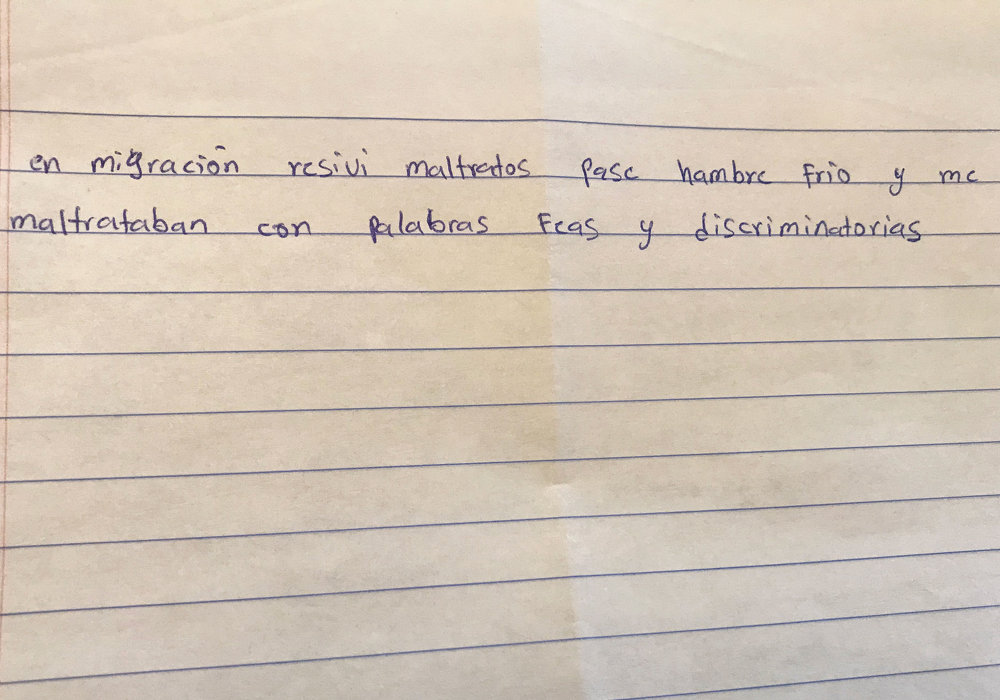 en migración resivi maltratos pase hambre frio y me
maltrataban con palabras feas y discriminatorias